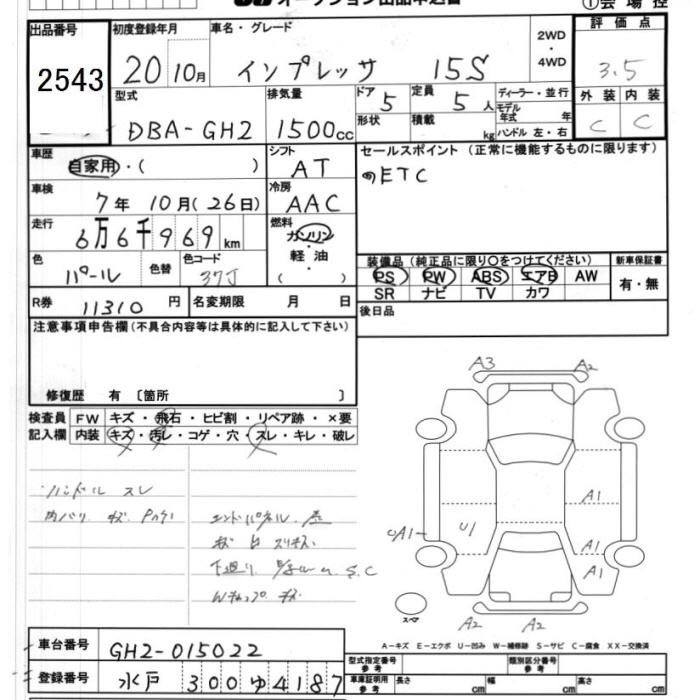 オークション出品申込書
①会場控
出品番号 2543
初度登録年月 20 10月
車名・グレード インプレッサ 15S
2WD ・ 4WD
評価点 3.5
型式 DBA-GH2
排気量 1500cc
ドア 5
形状
定員 5人
積載 kg
ディーラー・並行
モデル年式 年
ハンドル 左・右
外装 内装
C C
車歴 自家用・( )
シフト AT
セールスポイント (正常に機能するものに限ります)
ETC
車検 7年 10月(26日)
冷房 AAC
走行 6万6千969km
燃料 ガソリン
軽油
( )
色 パール 色替 色コード 37J
装備品 (純正品に限り○をつけてください)
新車保証書
PS PW ABS エアB AW
有・無
SR ナビ TV カワ
R券 11310円 名変期限 月 日
後日品
注意事項申告欄(不具合内容等は具体的に記入して下さい)
修復歴 有 〔箇所 〕
検査員記入欄
FW キズ・飛石・ヒビ割・リペア跡・×要
内装 キズ・汚レ・コゲ・穴・スレ・キレ・破レ
ハンドル スレ
内バリ キズ
エンドパネル
下廻り S.C
A3 A2
A1
U1
A1
A1
A1
スペア
A2 A2
A-キズ E-エクボ U-凹み W-補修跡 S-サビ C-腐食 XX-交換済
車台番号 GH2-015022
登録番号 水戸 300 ゆ 4187
型式指定番号 参考
類別区分番号 参考
車庫証明用 参考 長さ cm 幅 cm 高さ cm